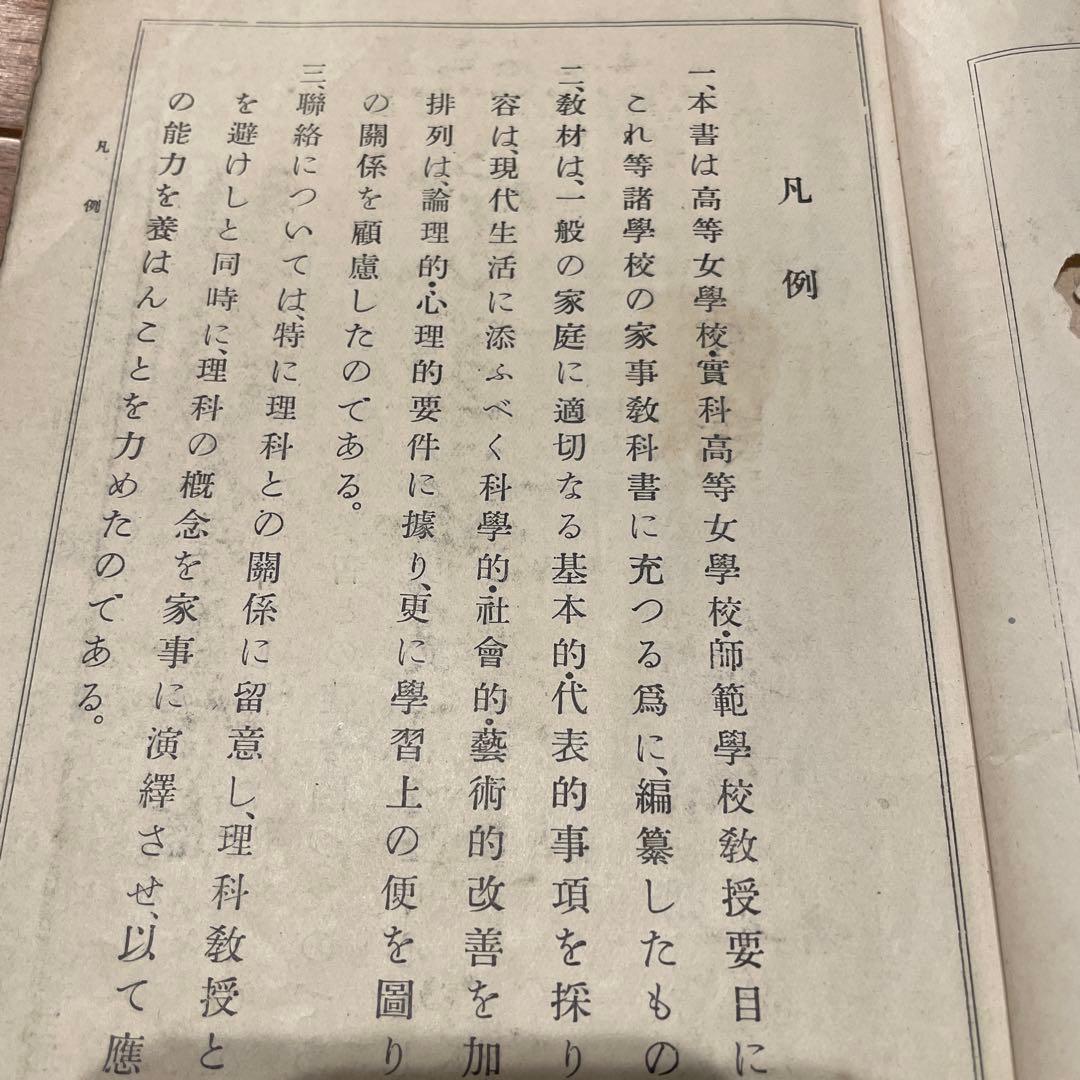 凡例
一、本書は高等女學校・實科高等女學校・師範學校教授要目に
これ等諸學校の家事教科書に充つる爲に、編纂したもの
二、教材は、一般の家庭に適切なる基本的・代表的事項を採り
容は、現代生活に添ふべく科學的・社會的・藝術的改善を加
排列は、論理的・心理的要件に據り、更に學習上の便を圖り
の關係を顧慮したのである。
三、聯絡については、特に理科との關係に留意し、理科教授と
を避けしと同時に、理科の概念を家事に演繹させ、以て應
の能力を養はんことを力めたのである。
凡例